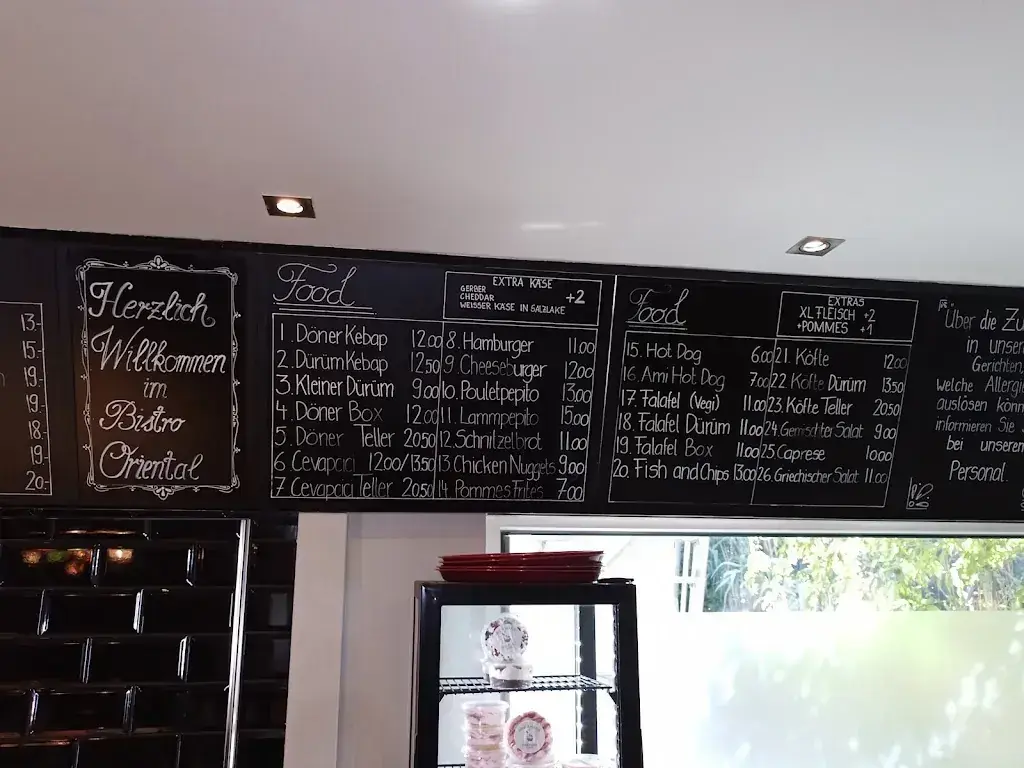 13.-
15.-
19.-
19.-
18.-
19.-
20.-
Herzlich
Willkommen
im
Bistro
Oriental
Food
EXTRA KÄSE
GERBER
CHEDDAR
WEISSER KÄSE IN SALZLAKE
+2
1. Döner Kebap 12.00
2. Dürüm Kebap 12.50
3. Kleiner Dürüm 9.00
4. Döner Box 12.00
5. Döner Teller 20.50
6 Cevapcici 12.00/13.50
7 Cevapcici Teller 20.50
8. Hamburger 11.00
9. Cheeseburger 12.00
10. Pouletpepito 13.00
11. Lammpepito 15.00
12. Schnitzelbrot 11.00
13 Chicken Nuggets 9.00
14. Pommes Frites 7.00
Food
EXTRAS
XL FLEISCH +2
+POMMES +1
15. Hot Dog 6.00
16. Ami Hot Dog 7.00
17. Falafel (Vegi) 11.00
18. Falafel Dürüm 11.00
19. Falafel Box 11.00
20. Fish and Chips 13.00
21. Köfte 12.00
22. Köfte Dürüm 13.50
23. Köfte Teller 20.50
24. Gemischter Salat 9.00
25 Caprese 10.00
26. Griechischer Salat 11.00
"Über die Zu
in unser
Gerichten,
welche Allergi
auslösen könn
informieren Sie
bei unserem
Personal.